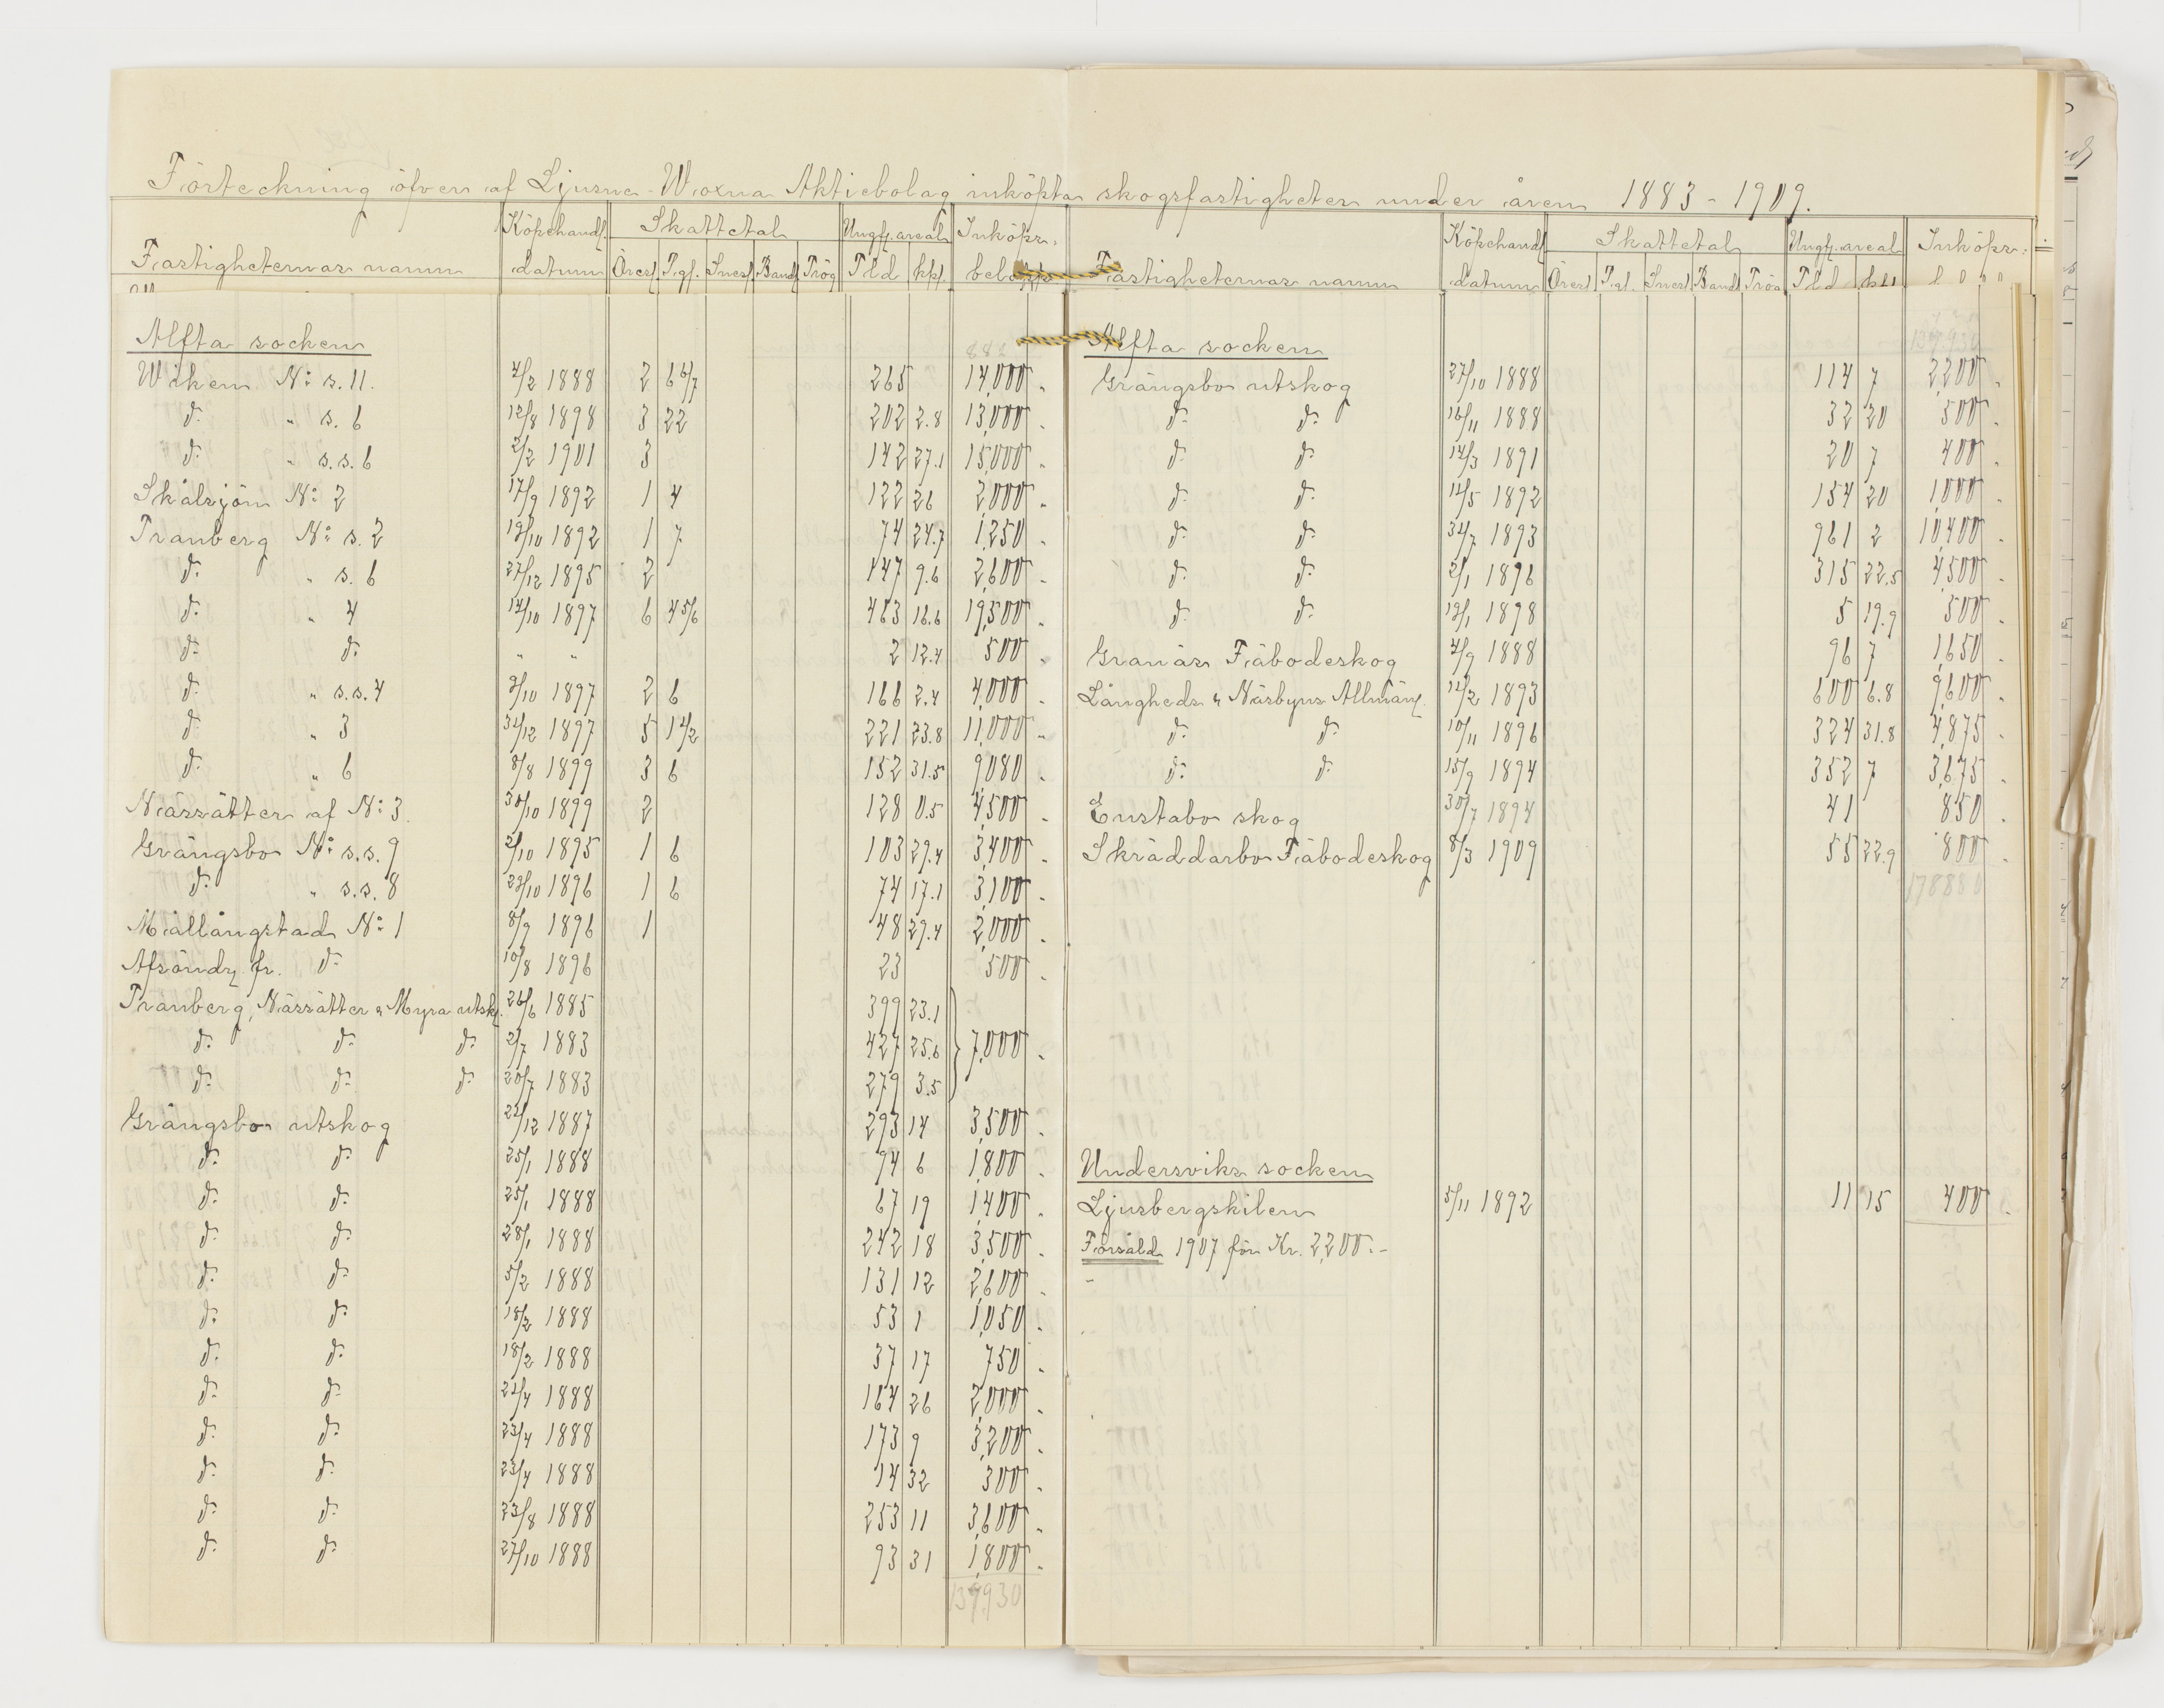 Förteckning öfver af Ljusne-Woxna Aktiebolag inköpta skogsfastigheter under åren 1883-1909.
Fastigheternas namn Köpehandl. datum Skattetal Öresl. Pgl. Snesl. Bandl. Trög Ungf. areal Tld kpl. Inköps-
Alfta socken
Wiken No s. 11. 4/2 1888 2 6 6/7 265 14,000 "
do " s. 6 12/8 1898 3 22 202 2.8 13,000 "
do " s.s. 6 2/2 1901 3 142 27.1 15,000 "
Skålsjön No 2 17/9 1892 1 4 122 26 2,000 "
Tranberg No s. 2 19/10 1892 1 7 74 24.7 1,250 "
do " s. 6 27/12 1895 2 147 9.6 2,600 "
do " 4 14/10 1897 6 4 5/6 463 16.6 19,500 "
do do " " 2 12.4 500 "
do " s.s. 4 9/10 1897 2 6 166 2.4 4,000 "
do " 3 31/12 1897 5 1 1/2 221 23.8 11,000 "
do " 6 8/8 1899 3 6 152 31.5 9,080 "
Nässätter af No 3. 30/10 1899 2 128 0.5 4,500 "
Grängsbo No s.s. 9 2/10 1895 1 6 103 29.4 3,400 "
do " s.s. 8 29/10 1896 1 6 74 17.1 3,100 "
Mållångstad No 1 8/9 1896 1 48 29.4 2,000 "
Afsöndr. fr. do 10/8 1896 23 500 "
Tranberg, Nässätter & Myra utsk. 26/6 1885 399 23.1
do do do 2/7 1883 427 25.6 7,000 "
do do do 20/7 1883 279 3.5
Grängsbo utskog 22/12 1887 293 14 3,500 "
do do 25/1 1888 94 6 1,800 "
do do 25/1 1888 67 19 1,400 "
do do 28/1 1888 242 18 3,500 "
do do 5/2 1888 131 12 2,600 "
do do 18/2 1888 53 1 1,050 "
do do 18/2 1888 37 17 750 "
do do 21/4 1888 164 26 2,000 "
do do 23/4 1888 173 9 3,200 "
do do 23/4 1888 14 32 300 "
do do 23/8 1888 253 11 3,600 "
do do 27/10 1888 93 31 1,800 "
139,930
Fastigheternas namn Köpehandl. datum Skattetal Öresl. Pgl. Snesl. Bandl. Trög Ungf. areal Tld kpl Inköps-
Alfta socken
Grängsbo utskog 27/10 1888 114 7 2,200 "
do do 16/11 1888 32 20 500 "
do do 14/3 1891 20 7 400 "
do do 12/5 1892 154 20 1,000 "
do do 31/7 1893 961 2 10,400 "
do do 2/1 1896 315 22.5 4,500 "
do do 19/1 1898 5 19.9 500 "
Granäs Fäbodeskog 4/9 1888 96 7 1,650 "
Långheds & Näsbyns Allmän. 12/2 1893 600 6.8 9,600 "
do do 10/11 1896 324 31.8 4,875 "
do do 15/9 1894 352 7 3,675 "
Enstabo skog 30/7 1894 41 850 "
Skräddarbo Fäbodeskog 8/3 1909 55 22.9 800 "
178880
Undersviks socken
Ljusbergskilen 5/11 1892 11 15 400 "
Försåld 1907 för Kr. 2,200.-